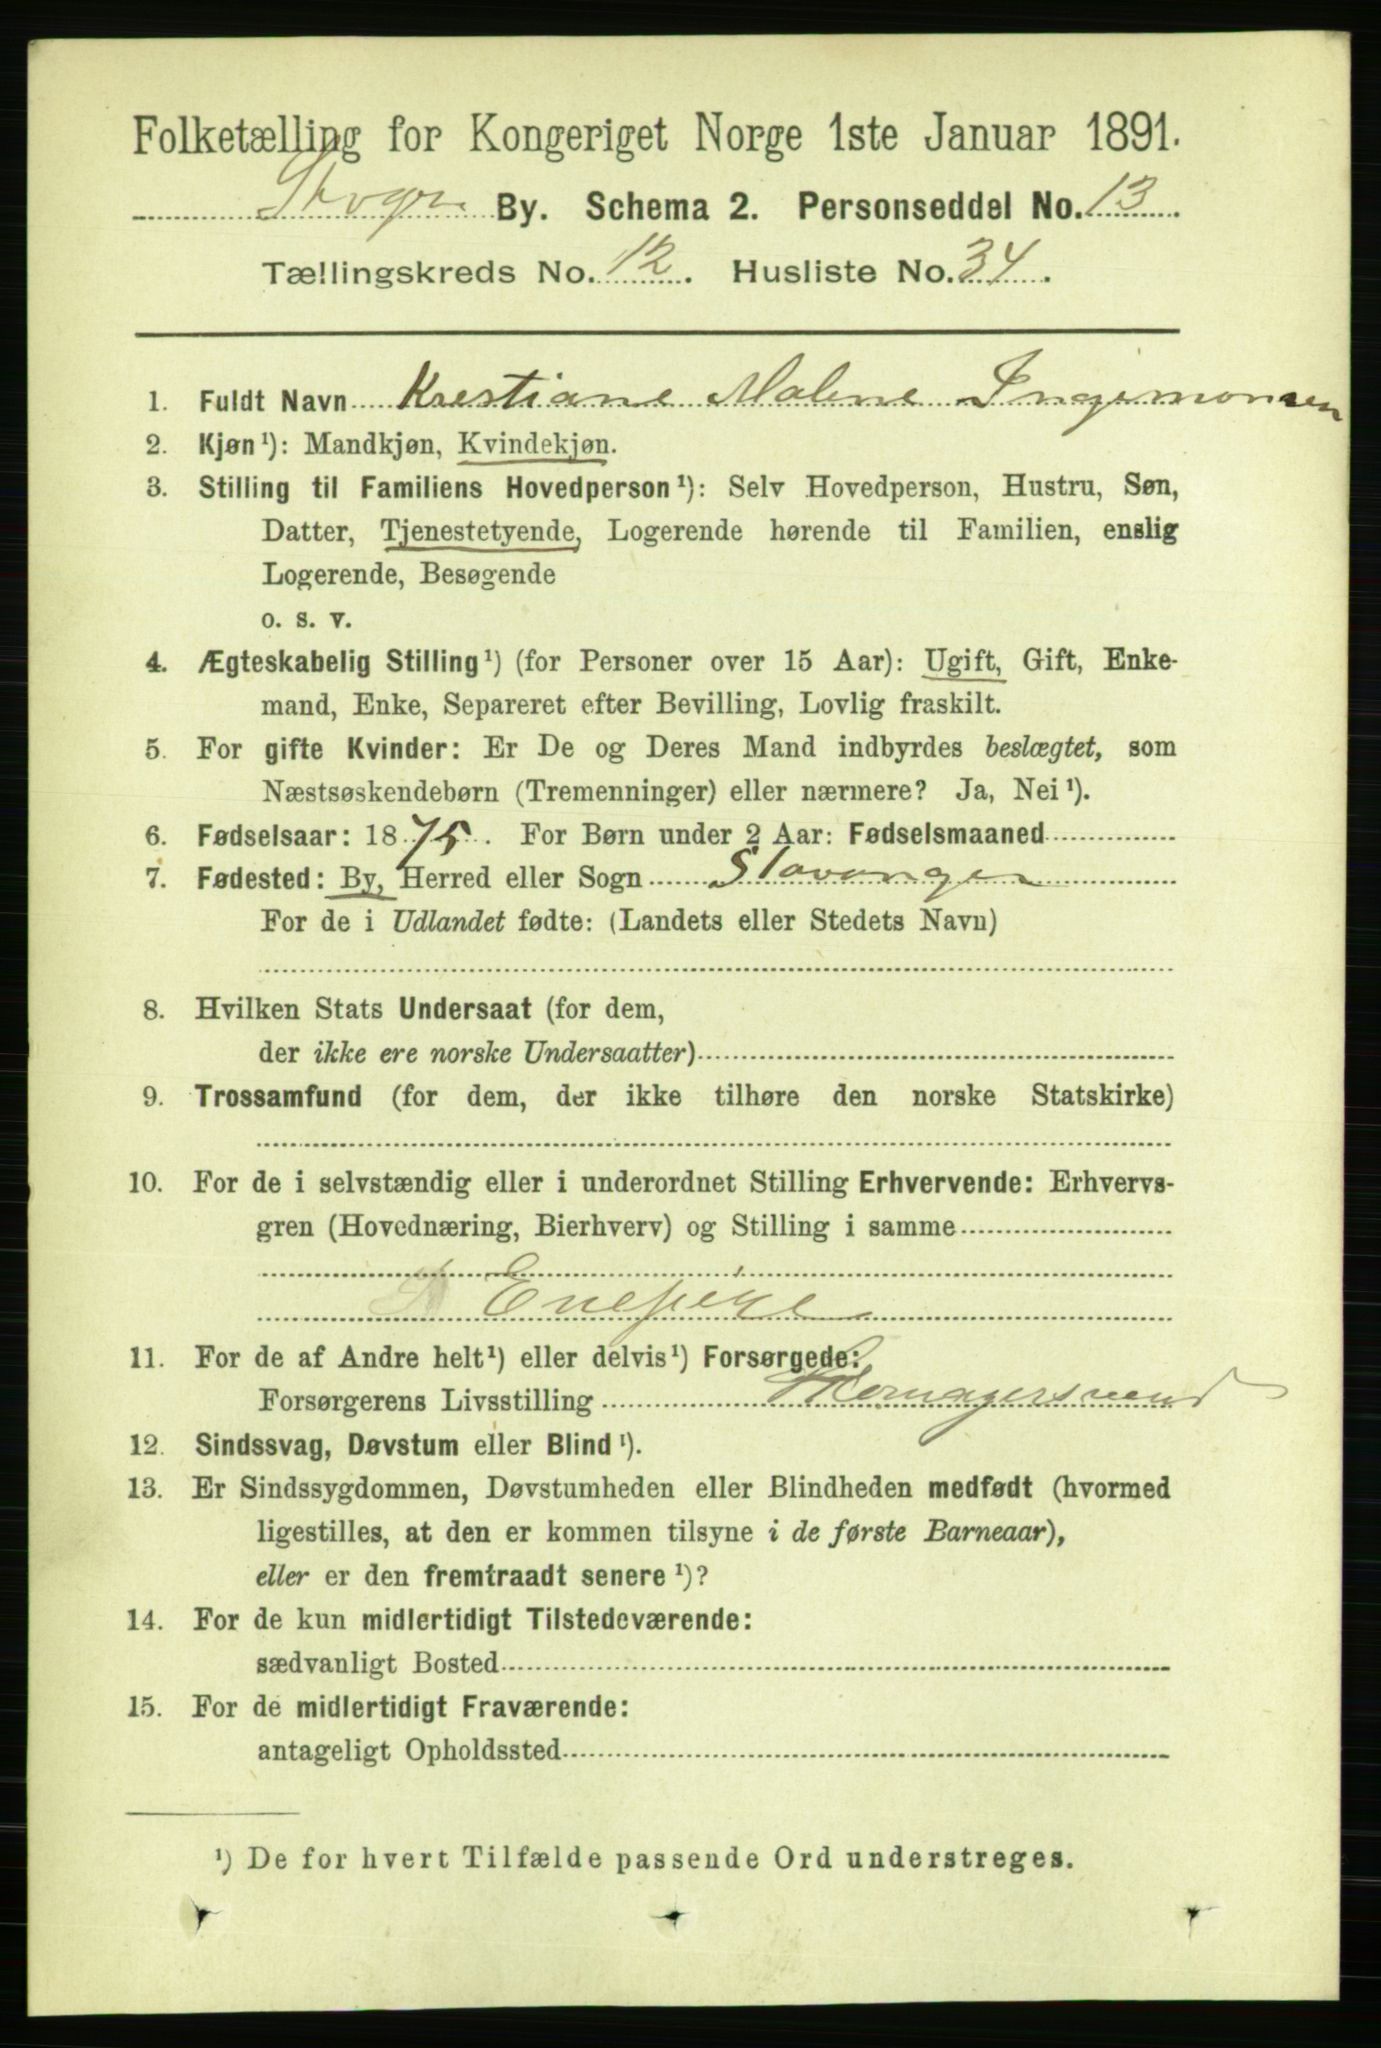 Folketælling for Kongeriget Norge 1ste Januar 1891.
Stvgr. By. Schema 2. Personseddel No. 13
Tællingskreds No. 12. Husliste No. 34.
1. Fuldt Navn Krestiane Malene Ingemonsen
2. Kjøn¹): Mandkjøn, Kvindekjøn.
3. Stilling til Familiens Hovedperson¹): Selv Hovedperson, Hustru, Søn,
Datter, Tjenestetyende, Logerende hørende til Familien, enslig
Logerende, Besøgende
o. s. v.
4. Ægteskabelig Stilling¹) (for Personer over 15 Aar): Ugift, Gift, Enke-
mand, Enke, Separeret efter Bevilling, Lovlig fraskilt.
5. For gifte Kvinder: Er De og Deres Mand indbyrdes beslægtet, som
Næstsøskendebørn (Tremenninger) eller nærmere? Ja, Nei¹).
6. Fødselsaar: 1875. For Børn under 2 Aar: Fødselsmaaned
7. Fødested: By, Herred eller Sogn Stavanger
For de i Udlandet fødte: (Landets eller Stedets Navn)
8. Hvilken Stats Undersaat (for dem,
der ikke ere norske Undersaatter)
9. Trossamfund (for dem, der ikke tilhøre den norske Statskirke)
10. For de i selvstændig eller i underordnet Stilling Erhvervende: Erhvervs-
gren (Hovednæring, Bierhverv) og Stilling i samme
Enepige
11. For de af Andre helt¹) eller delvis¹) Forsørgede:
Forsørgerens Livsstilling Skomagersvend
12. Sindssvag, Døvstum eller Blind¹).
13. Er Sindssygdommen, Døvstumheden eller Blindheden medfødt (hvormed
ligestilles, at den er kommen tilsyne i de første Barneaar),
eller er den fremtraadt senere¹)?
14. For de kun midlertidigt Tilstedeværende:
sædvanligt Bosted
15. For de midlertidigt Fraværende:
antageligt Opholdssted
¹) De for hvert Tilfælde passende Ord understreges.